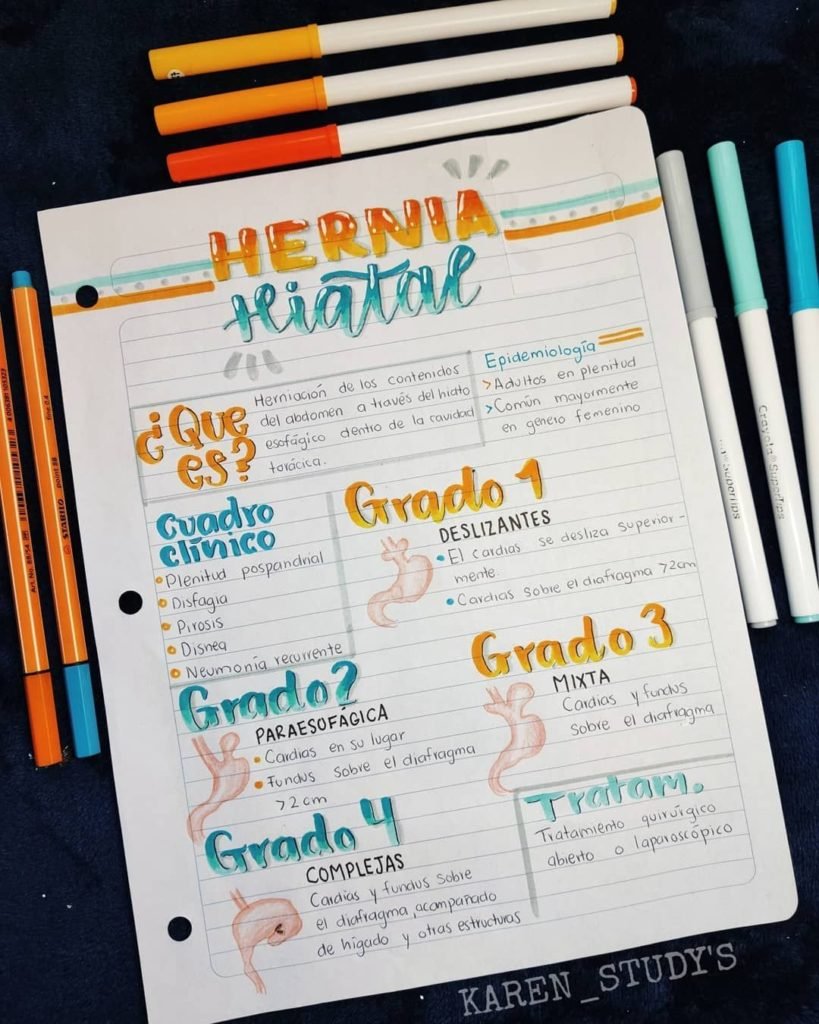 HERNIA
Hiatal
¿Que
es?
Herniación de los contenidos
del abdomen a través del hiato
esofágico dentro de la cavidad
torácica.
Epidemiología
> Adultos en plenitud
> Común mayormente
en genero femenino
Cuadro
clínico
Plenitud pospandrial
Disfagia
Pirosis
Disnea
Neumonía recurrente
Grado 1
DESLIZANTES
El cardias se desliza superior-
mente.
Cardias sobre el diafragma >2cm
Grado 2
PARAESOFÁGICA
Cardias en su lugar
Fundus sobre el diafragma
>2cm
Grado 3
MIXTA
Cardias y fundus
sobre el diafragma
Grado 4
COMPLEJAS
Cardias y fundus sobre
el diafragma, acompañado
de hígado y otras estructuras
Tratam.
Tratamiento quirúrgico
abierto o laparoscópico
STABILO point 88 fine 0.4
Crayola Supertips
Supertips
KAREN_STUDY'S